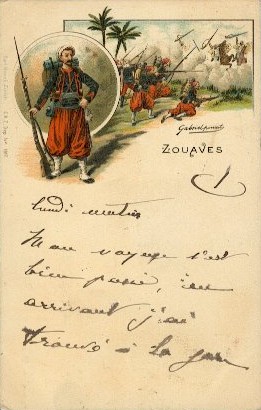 Gabriel
ZOUAVES
lundi matin
Mon voyage s'est
bien passé, en
arrivant j'ai
trouvé à la gare